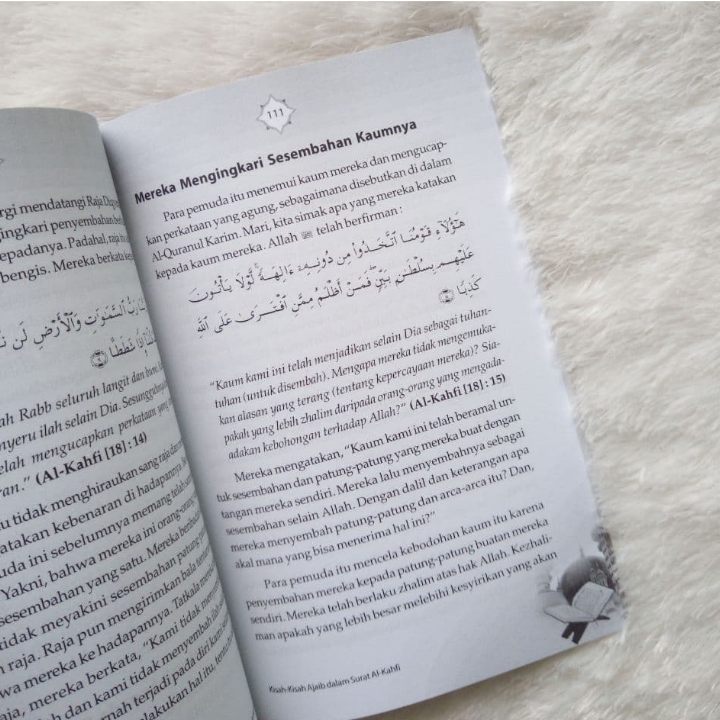 ergi mendatangi Raja Daq
ngingkari penyembahan ber
kepadanya. Padahal, raja
bengis. Mereka berkata
رَبُّ السَّمَوَتِ وَالْأَرْضِ لَن
إِذًا شَطَطًا ١٤
ah Rabb seluruh langit dan bumi.
nyeru ilah selain Dia. Sesungguhnya
elah mengucapkan perkataan yang
ran." (Al-Kahfi [18] : 14)
u tidak menghiraukan sang raja dan
atakan kebenaran di hadapannya.
uda ini sebelumnya memang telah
Yakni, bahwa mereka ini orang-orang
sesembahan yang satu. Mereka
tidak meyakini sesembahan patung
raja. Raja pun mengirimkan bala
wa mereka ke hadapannya. Tatkala
aja, mereka berkata, "Kami tidak
h dan kami tidak menyembah ilah
rnah terjadi pada diri kami
lakukan hal itu, tentu
111
Mereka Mengingkari Sesembahan Kaumnya
Para pemuda itu menemui kaum mereka dan mengucap-
kan perkataan yang agung, sebagaimana disebutkan di dalam
Al-Quranul Karim. Mari, kita simak apa yang mereka katakan
kepada kaum mereka. Allah ﷻ telah berfirman :
هَؤُلَاءِ قَوْمُنَا اتَّخَذُوا مِن دُونِهِ ءَالِهَةً لَّوْلَا يَأْتُونَ
عَلَيْهِم بِسُلْطَنٍ بَيِّنٍ فَمَنْ أَظْلَمُ مِمَّنِ افْتَرَى عَلَى اللَّهِ
كَذِبًا ١٥
"Kaum kami ini telah menjadikan selain Dia sebagai tuhan-
tuhan (untuk disembah). Mengapa mereka tidak mengemuka-
kan alasan yang terang (tentang kepercayaan mereka)? Sia-
pakah yang lebih zhalim daripada orang-orang yang mengada-
adakan kebohongan terhadap Allah?" (Al-Kahfi [18] : 15)
Mereka mengatakan, "Kaum kami ini telah beramal un-
tuk sesembahan dan patung-patung yang mereka buat dengan
tangan mereka sendiri. Mereka lalu menyembahnya sebagai
sesembahan selain Allah. Dengan dalil dan keterangan apa
mereka menyembah patung-patung dan arca-arca itu? Dan,
akal mana yang bisa menerima hal ini?"
Para pemuda itu mencela kebodohan kaum itu karena
penyembahan mereka kepada patung-patung buatan mereka
sendiri. Mereka telah berlaku zhalim atas hak Allah. Kezhali-
man apakah yang lebih besar melebihi kesyirikan yang akan
Kisah-Kisah Ajaib dalam Surat Al-Kahfi